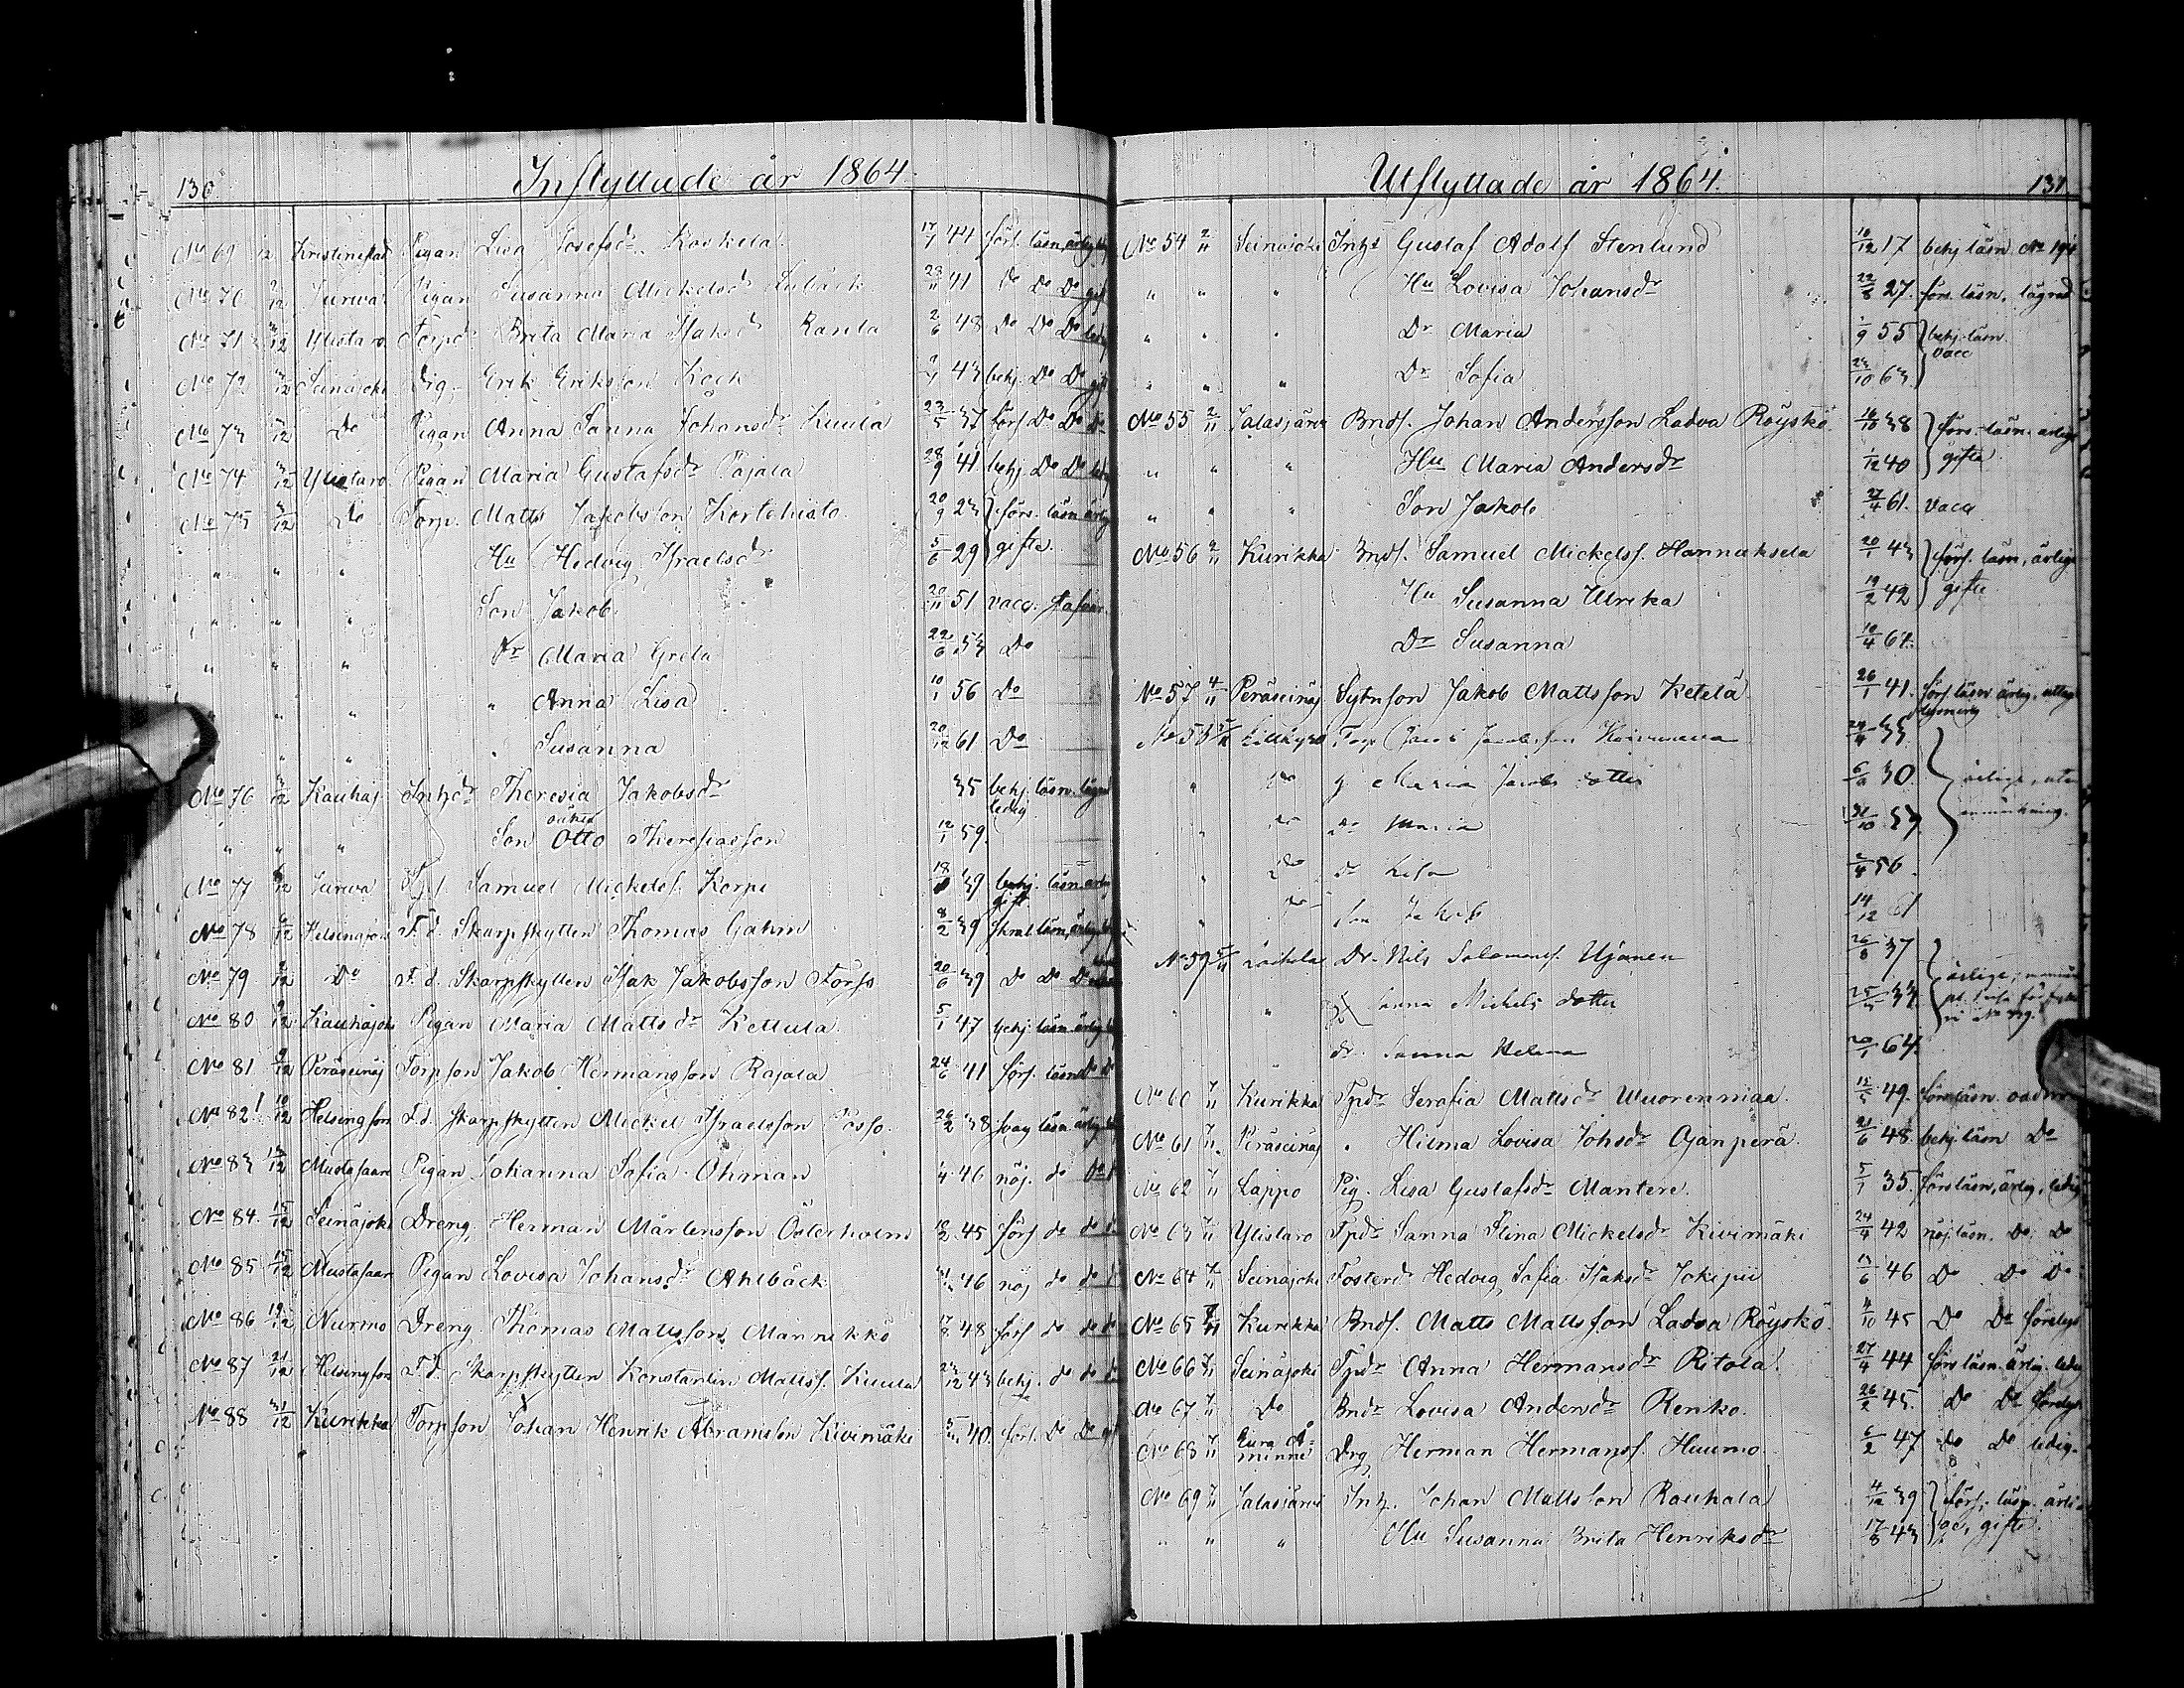 130
Inflyttade år 1864.
No 69 12 Kristinestad Pigan Lisa Josefsdr Koskela 17/7 44 förs. läsn. ärlig
No 70 /12 Jurwa Pigan Susanna Mickelsdr 23/11 41 Do Do Do gift
No 71 /12 Ylistaro Torpdr Brita Maria Isaksdr Ranta 2/6 48 Do Do Do ledig
No 72 3/12 Seinäjoki Erik Eriksson Kock 43 behj. Do Do gift
No 73 /12 Do Pigan Anna Sanna Johansdr Kuula 23/5 37 förs Do Do Do
No 74 3/12 Ylistaro Pigan Maria Gustafsdr Pajala 28/9 41 behj. Do Do ledig
No 75 3/12 Do Torp. Matts Jakobsson Kortehisto 20/9 23 förs. läsn. ärlig
" " " Hu Hedvig Israelsdr 5/6 29 gifte.
" " " Son Jakob 20/11 51 vacc.
" " " Dr Maria Greta 22/6 53 Do
" " " " Anna Lisa 10/1 56 Do
" " " Susanna 20/12 61 Do
No 76 3/12 Kauhaj. Inhdr Theresia Jakobsdr 35 behj. läsn. lägrad
ledig
" " " Son oäkta Otto Theresiasson 12/1 59.
No 77 6/12 Jurwa Samuel Mickelss. Korpi 18/ 39 behj. läsn. ärlig
gift
No 78 6/12 Helsingfors F.d. Skarpskytten Thomas Gahm 8/2 39 läsn, ärlig
No 79 9/12 Do F.d. Skarpskytten Isak Jakobsson Forss 20/6 39 Do Do Do
No 80 9/12 Kauhajoki Pigan Maria Mattsdr Kettula. 5/1 47 behj. läsn ärlig
No 81 9/12 Peräseinäj Torpson Jakob Hermansson Rajala 24/6 41 förs. läsn Do D
No 82 10/12 Helsingfors F.d. Skarpskytten Mickel Israelsson Posso. 26/2 38 svag läsn ärlig
No 83 13/12 Mustasaari Pigan Johanna Sofia Öhman 1/4 46 nöj. do Do
No 84. 15/12 Seinäjoki Dreng. Herman Mårtensson Österholm 18/2 45 förs do do
No 85 15/12 Mustasaar Pigan Lovisa Johansdr Ahlbäck 46 nöj do do
No 86 19/12 Nurmo Dreng. Thomas Mattsson Mannikkö 17/8 48 förs do do
No 87 21/12 Helsingfors F.d. Skarpskytten Konstantin Mattss. Kuula 23/12 43 behj. do do
No 88 31/12 Kurikka Torpson Johan Henrik Abramsson Kivimäki 5/ 40. förs. Do Do gift
Utflyttade år 1864.
131
No 54 2/11 Seinäjoki Inhs Gustaf Adolf Stenlund 10/12 17 behj läsn No 194
" " " Hu Lovisa Johansdr 22/8 27. förs. läsn. lägrad
" " " Dr Maria 1/9 55 behj. läsn.
vacc
" " " Dr Sofia 23/10 63
No 55 2/11 Jalasjärvi Bnds. Johan Andersson Ladva Röyskö 16/10 38 förs. läsn. ärlige
" " " Hu Maria Andersdr 1/12 40 gifta
" " " Son Jakob 27/4 61. vacc
No 56 2/11 Kurikka Bnds. Samuel Mickelss. Hannuksela 20/1 43 förs. läsn, ärlige
Hu Susanna Ulrika 19/2 42 gifte
Dr Susanna 10/4 64.
No 57 4/11 Peräseinäj Sytnson Jakob Mattsson Ketelä 26/1 41. förs läsn ärlig,
No 58 5/11 Lillkyro Torp Jacob Jacobsson Koivumaa 24/4 33
" Do g Maria Jacobs dotter 6/3 30. ärlige, utan
" Do dr Maria 31/10 53 anmärkning.
" Do dr Lisa 2/8 56
" Do Son Jakob 14/12 61
No 59 5/11 Laihela Dr. Nils Salomonss. Ujanen 26/8 37
" " Sanna Michels dotter 25/ 33 ärlige,
dr. Sanna Helena 20/1 64.
No 60 7/11 Kurikka Tpdr Serafia Mattsdr Wuorenmaa. 12/5 49. förs läsn.
No 61 7/11 Peräseinäj " Hilma Lovisa Johsdr Ojanperä. 21/6 48. behj. läsn Do
No 62 7/11 Lappo Pig. Lisa Gustafsdr Mantere. 5/7 35. förs läsn, ärlig, ledig
No 63 7/11 Ylistaro Tpdr Sanna Stina Mickelsdr Kivimäki 24/4 42 nöj. läsn. Do Do
No 64 7/11 Seinäjoki Fosterdr Hedvig Sofia Isaksdr Jokipii 13/6 46 Do Do Do
No 65 7/11 Kurikka Bnds. Matts Mattsson Ladva Röyskö. 4/10 45 Do Do
No 66 7/11 Seinäjoki Tpdr Anna Hermansdr Ritola. 27/4 44 förs läsn. ärlig. ledig
No 67 7/11 Do Bndr Lovisa Andersdr Renko. 26/2 45. Do Do
No 68 7/11 Eura Å-
minne Drg Herman Hermanss. Huumo 6/2 47 Do Do ledig.
No 69 7/11 Jalasjärvi Inh. Johan Mattsson Rauhala 4/12 39 förs. läsn. ärli
" " " Hu Susanna Brita Henriksdr 17/8 43 oc, gifte.